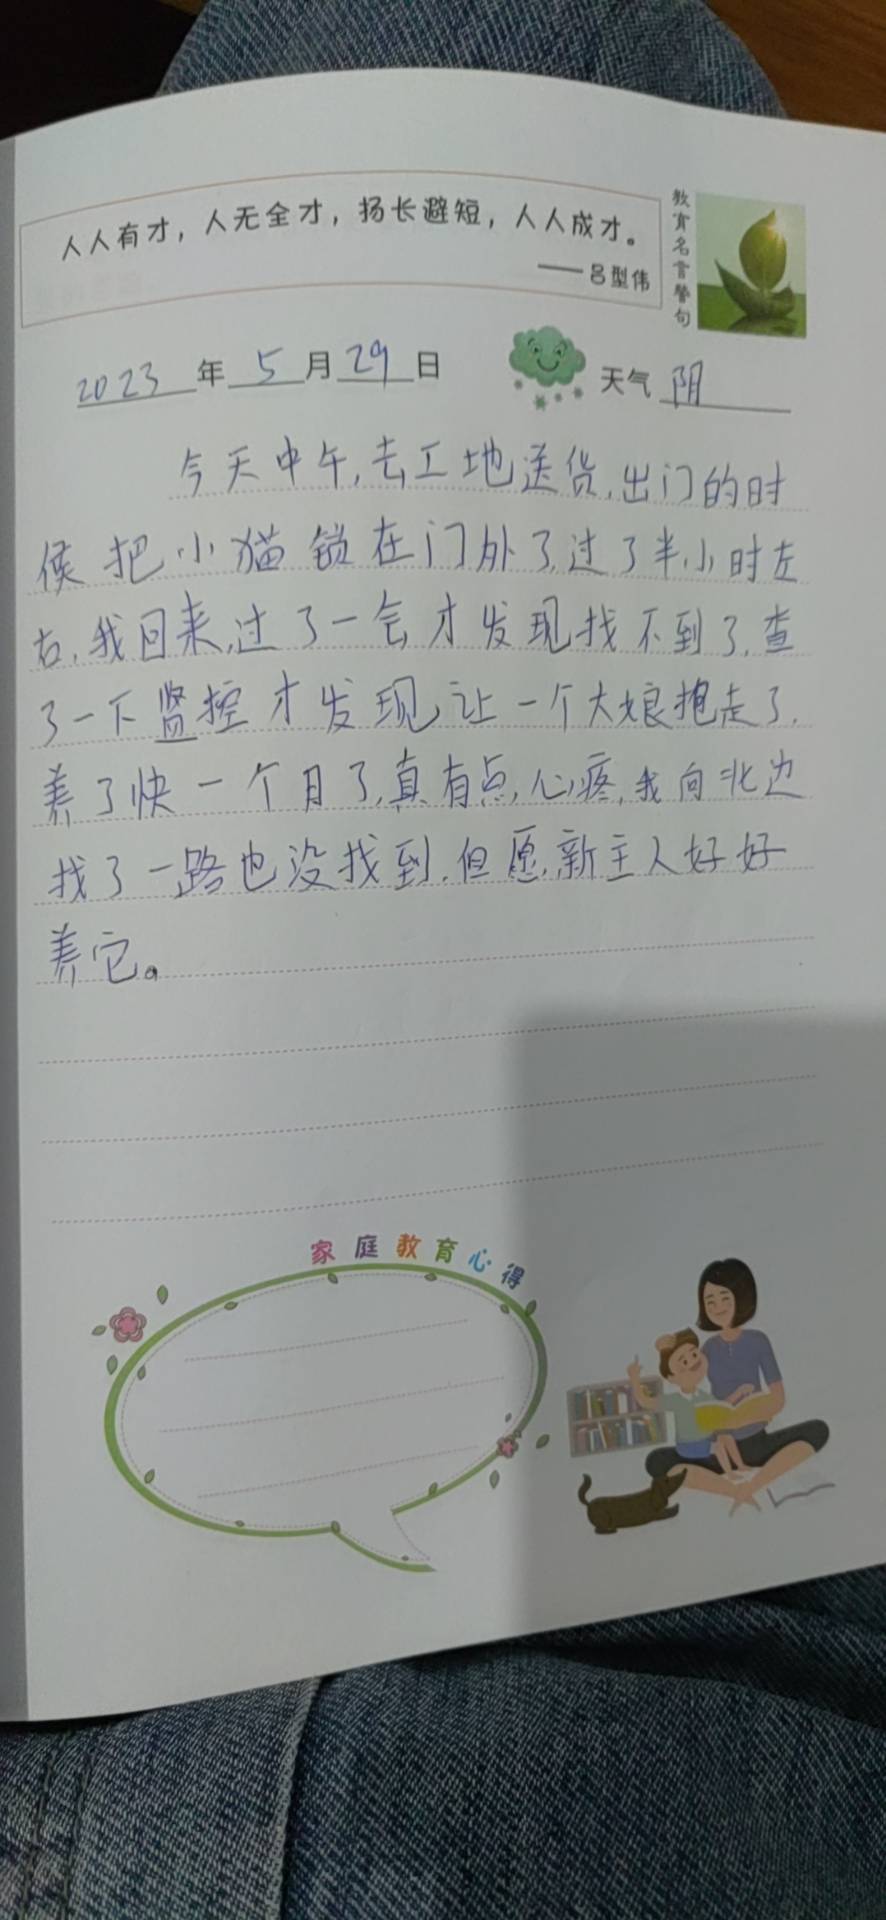 人人有才，人无全才，扬长避短，人人成才。
——吕型伟
教育名言警句
2023年5月29日
天气 阴
今天中午,去工地送货,出门的时
候把小猫锁在门外了,过了半小时左
右,我回来,过了一会才发现找不到了,查
了一下监控才发现让一个大娘抱走了,
养了快一个月了,真有点,心疼,我向北边
找了一路也没找到,但愿,新主人好好
养它。
家庭教育心得